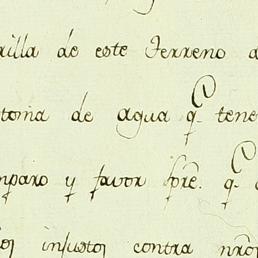 rilla de este Terreno a
toma de agua q.̃ tene
mparo y favor spre. q.̃
los injustos contra nr̃os